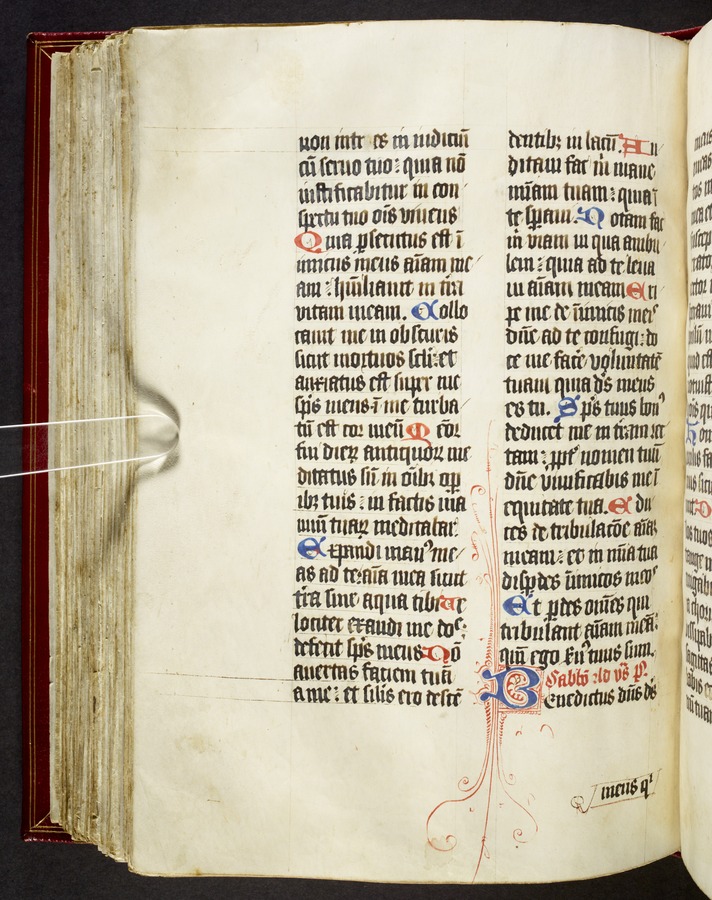 non intr es in iudiciū
cū seruo tuo: quia nō
iustificabitur in con
spectu tuo oīs viuens
Quia ꝑsecutus est ī
imicus meus aīam me
am: huīliauit in tr̄a
vitam meam. Collo
cauit me in obscuris
sicut mortuos scl̄i: et
anxiatus est super me
sp̄s meus: ī me turba
tū est cor meū Me͞or
fui dierꝫ antiquorꝫ me
ditatus sū in oībꝫ oꝑ
ibꝫ tuis: in factis ma
nuū tuarꝫ meditabar.
Expandi manꝰ me
as ad te: aīa mea sicut
tr̄a sine aqua tibi Ve
lociter exaudi me do͞e:
defecit sp̄s meus Nō
auertas faciem tuā
a me: et sīlis ero desce͞
dentibꝫ in lacū. Au
ditam fac m̄ mane
mīam tuam: quia ī
te sꝑaui. Notam fac
m̄ viam in qua ambu
lem: quia ad te leua
ui aīam meam Eri
pe me de īimicis meis
dn̄e ad te confugi: do
ce me facē voluntatē
tuam quia d̄s meus
es tu. Sp̄s tuus bonꝰ
deducet me in tr̄am rec
tam: ꝓpt̄ nomen tuū
dn̄e viuificabis me ī
equitate tua. Edu
ces de tribulac͞oe aīaꝫ
meam: et in mīa tua
disꝑdes īimicos meoˢ
Et ꝑdes omēs qui
tribulant aīam meā:
qm̄ ego ẜuꝰ tuus sum.
Sabb̄o
Benedictus dn̄s d̄s
meus qͥ